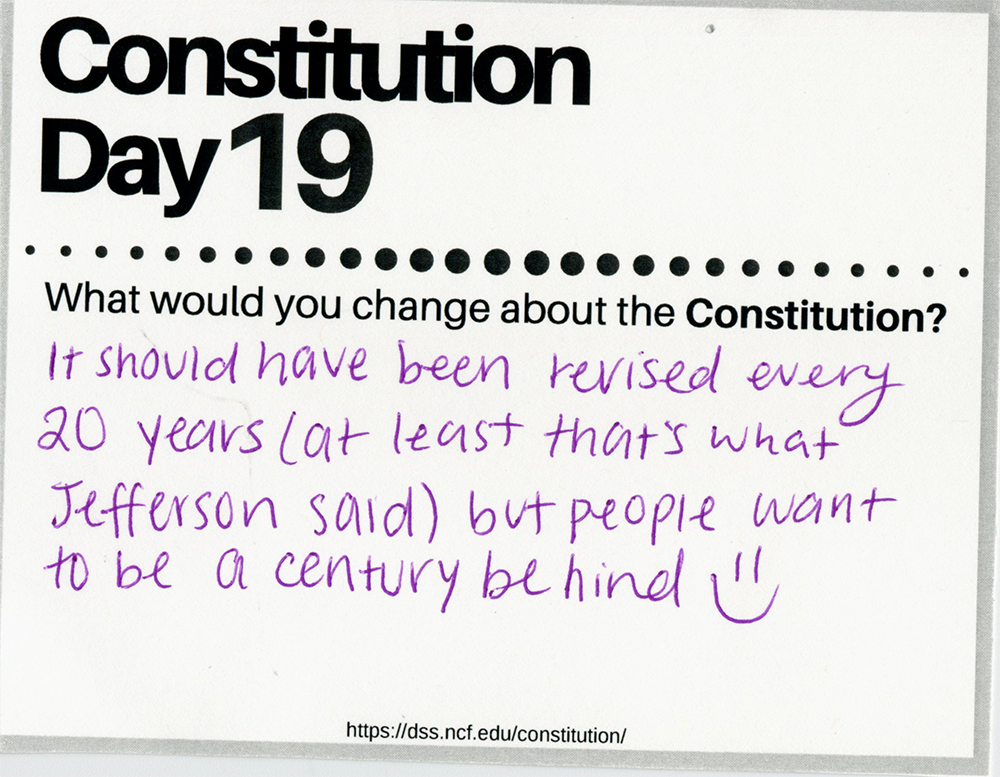 Constitution
Day 19
What would you change about the Constitution?
It should have been revised every
20 years (at least that's what
Jefferson said) but people want
to be a century behind
https://dss.ncf.edu/constitution/